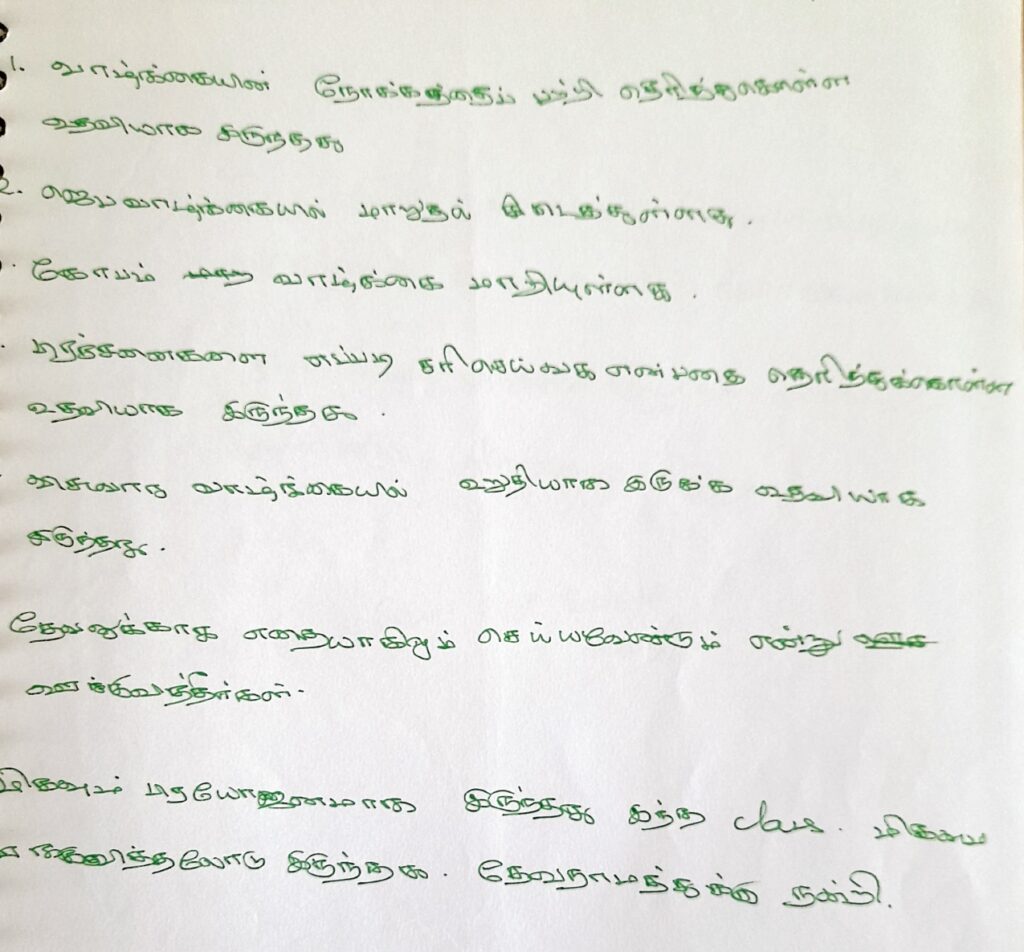 1. வாழ்க்கையின் நோக்கத்தைப் பற்றி தெரிந்துகொள்ள
உதவியாக இருந்தது
2. ஜெப வாழ்க்கையில் மாறுதல் கிடைத்துள்ளது.
. கோபம் வாழ்க்கை மாறியுள்ளது.
. பிரச்சனைகளை எப்படி சரிசெய்வது என்பதை தெரிந்துக்கொள்ள
உதவியாக இருந்தது.
வாழ்க்கையில் உறுதியாக இருக்க உதவியாக
இருந்தது.
தேவனுக்காக எதையாகிலும் செய்யவேண்டும் என்று
ஊக்குவித்தீர்கள்.
மிகவும் பிரயோஜனமாக இருந்தது இந்த class. மிகவும்
இருந்தது. தேவநாமத்துக்கு நன்றி.